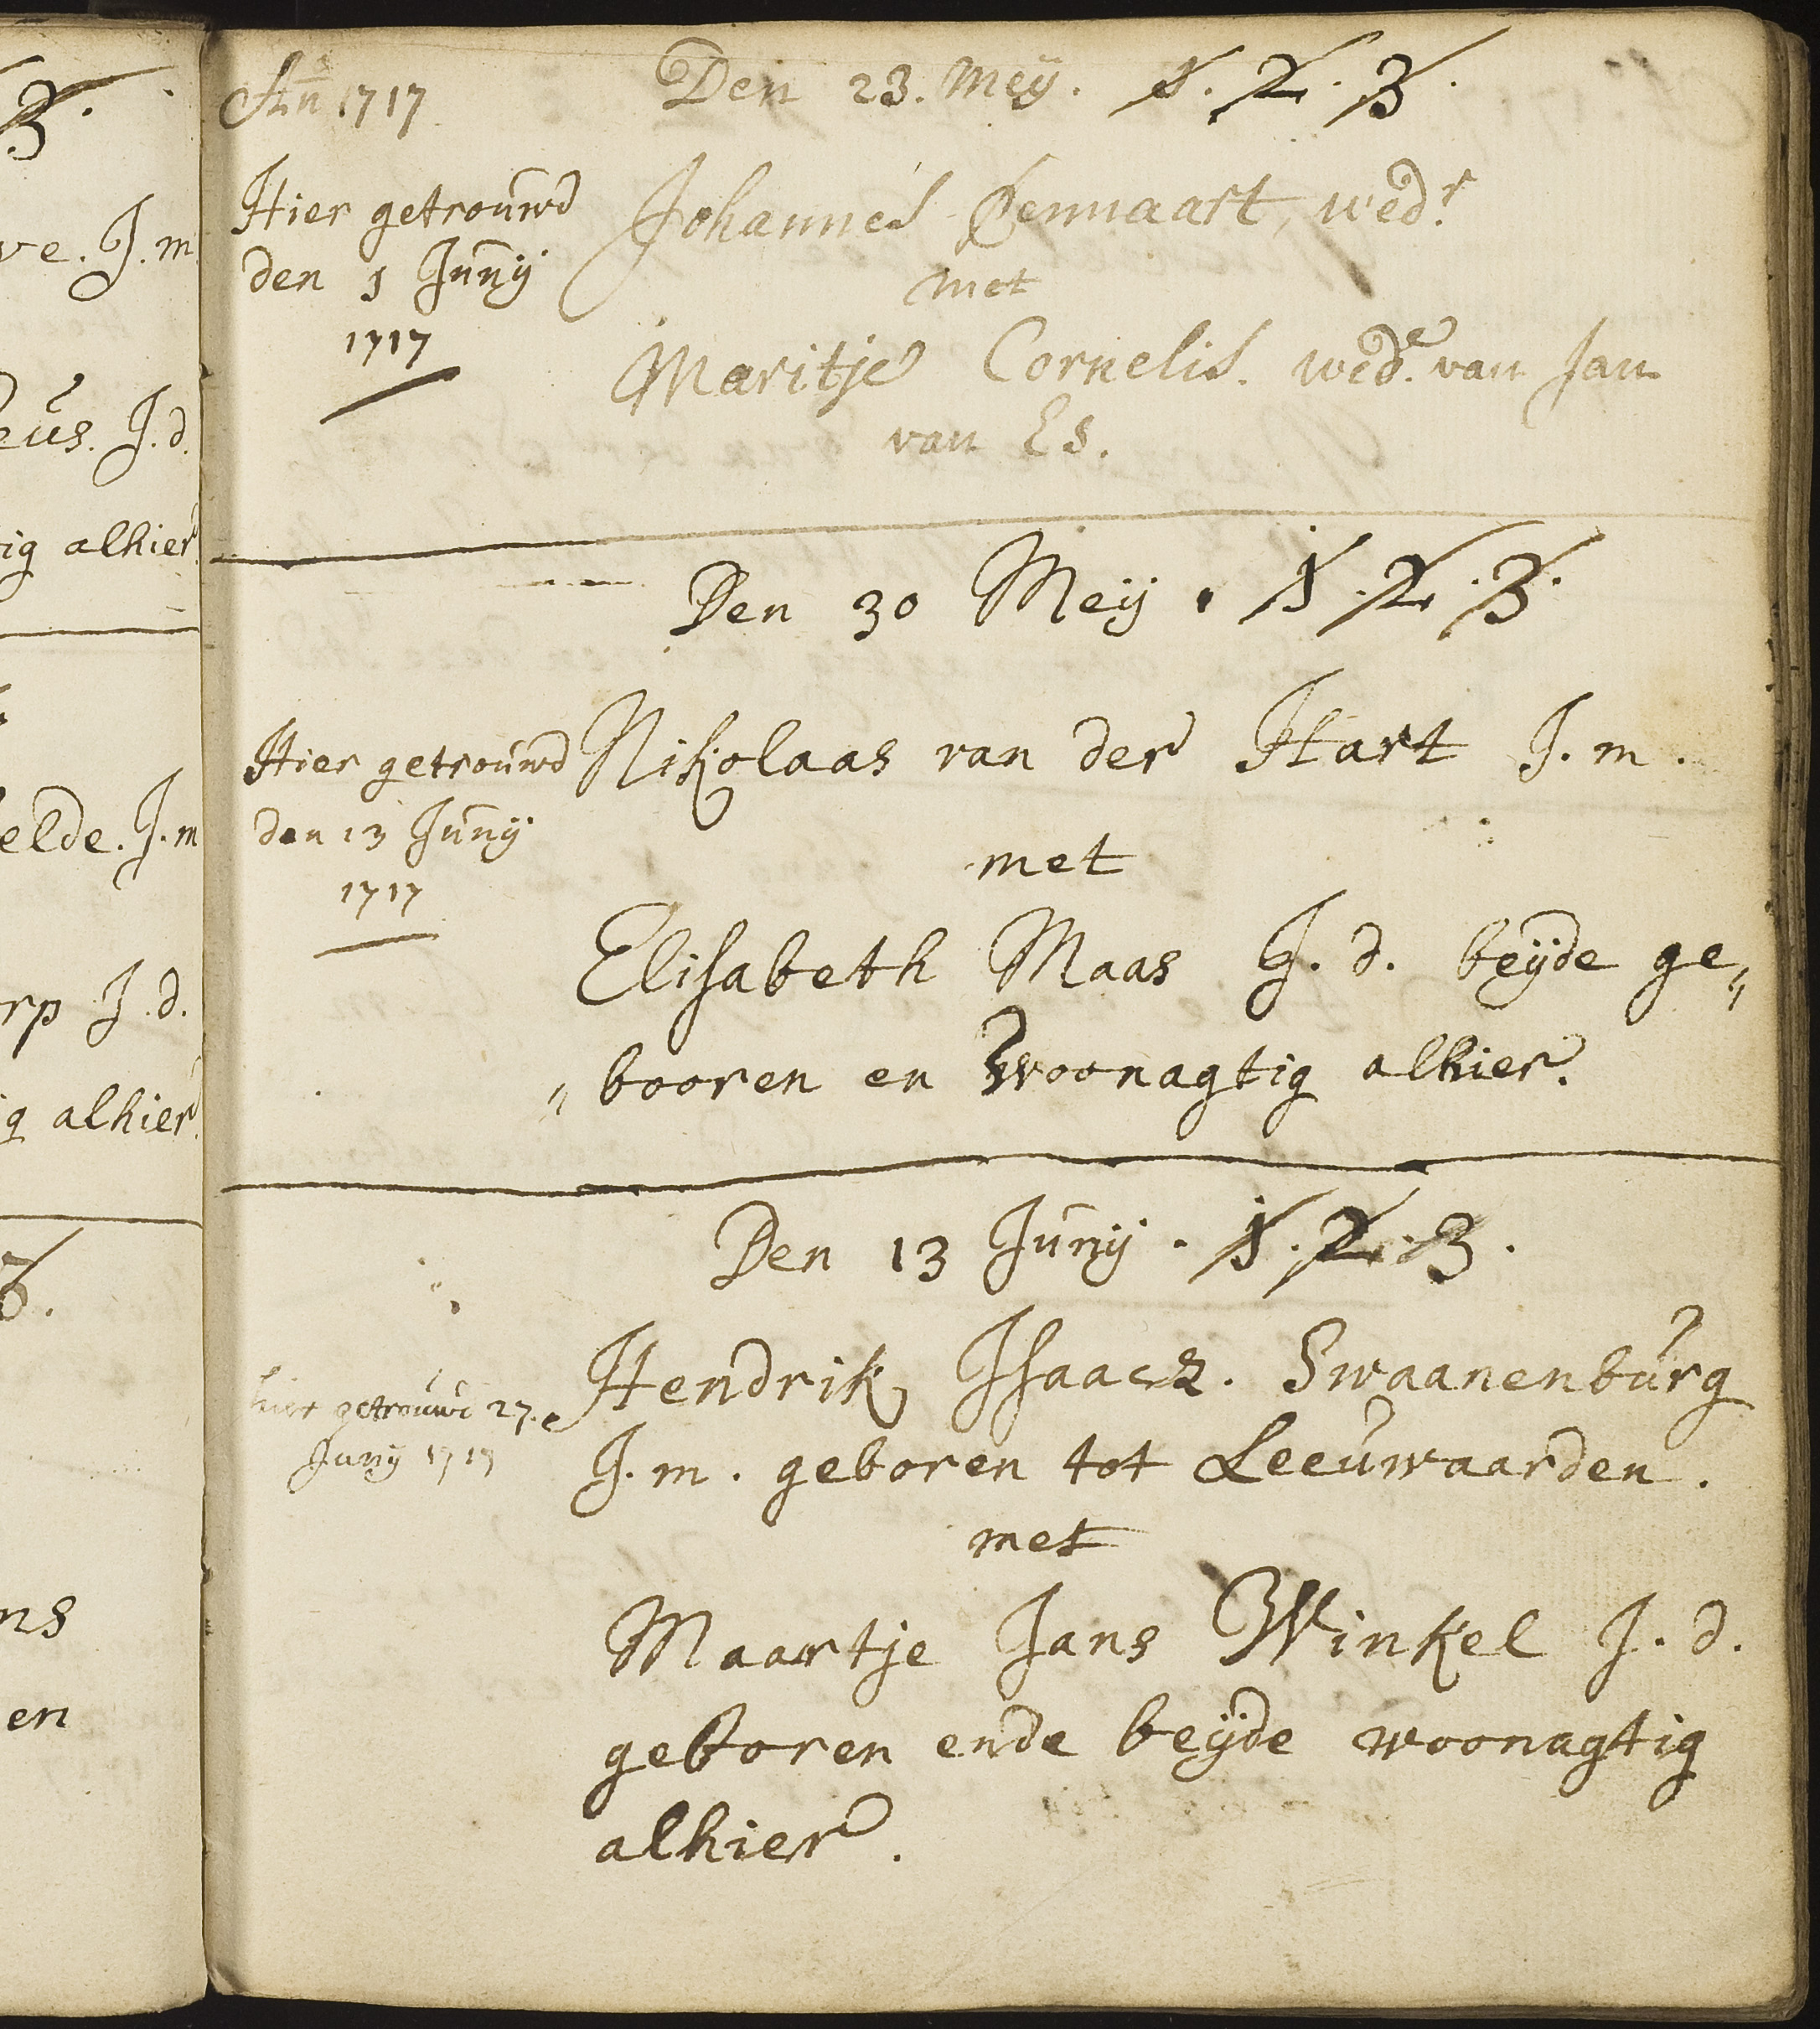 3.
ve. J. m.
eus. J. d.
ig alhier
elde. J. m
rp J. d.
ig alhier
3.
ns
en
An̄ 1717
Den 23. Meÿ. 1. 2. 3.
Hier getrouwd
den 1 Junÿ
1717
Johannes Pennaart, wedr.
met
Maritje Cornelis. wede. van Jan
van Es.
Den 30 Meÿ. 1. 2. 3.
Hier getrouwd
den 13 Junÿ
1717
Nikolaas van der Hart J. m.
met
Elisabeth Maas J. d. beÿde ge„
„booren en woonagtig alhier.
Den 13 Junÿ. 1. 2. 3.
hier getrouwd 27.e
Junÿ 1717
Hendrik Isaacz. Swaanenburg
J. m. geboren tot Leeuwaarden.
met
Maartje Jans Winkel J. d.
geboren ende beÿde woonagtig
alhier.